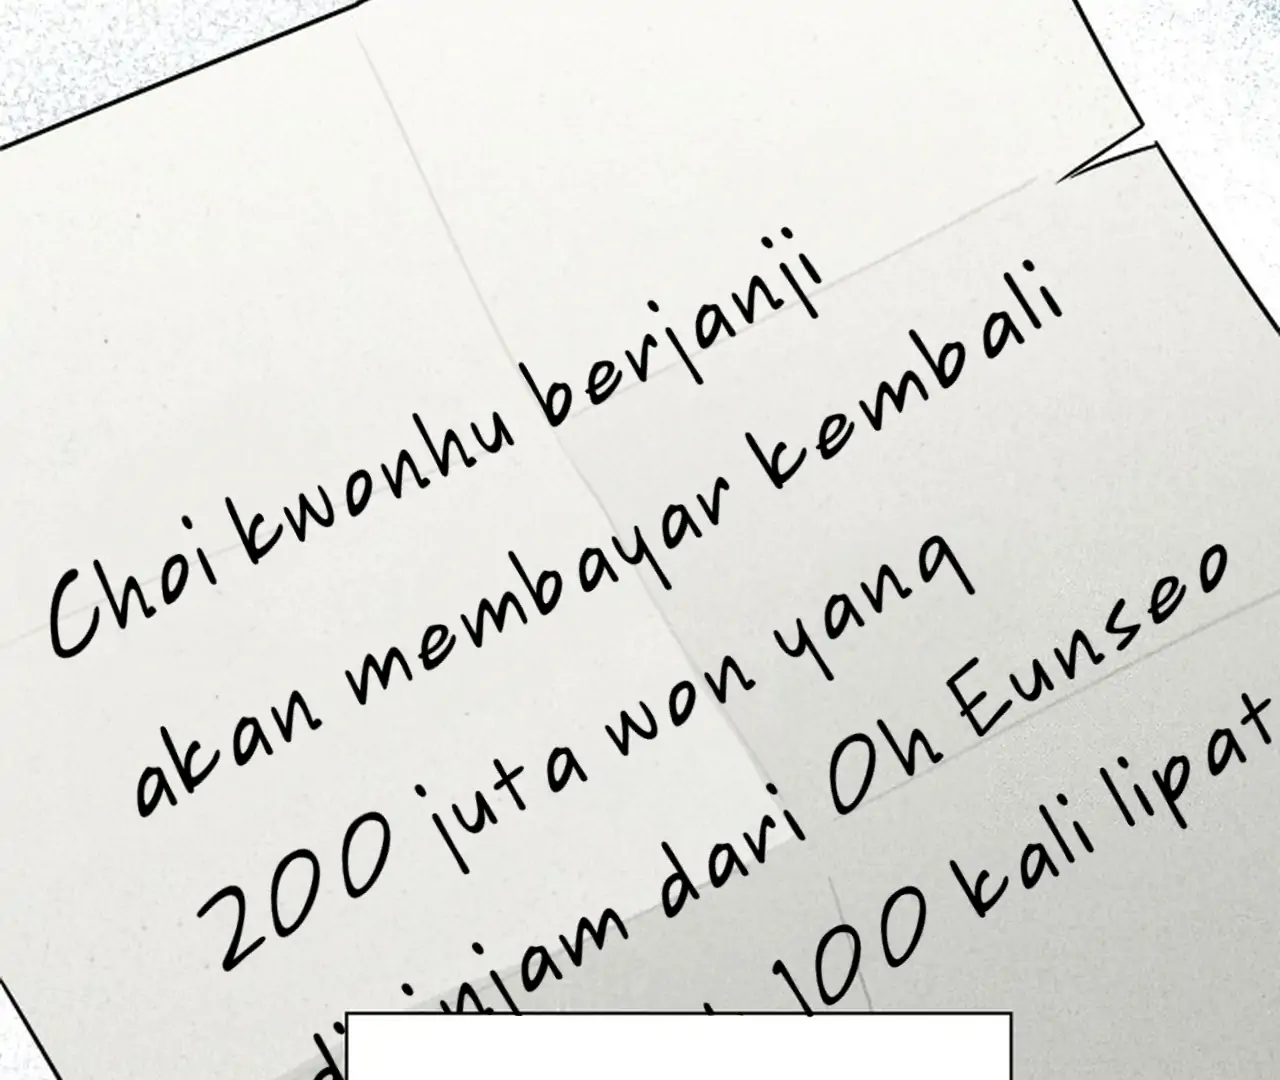 Choi kwonhu berjanji
akan membayar kembali
200 juta won yang
dari Oh Eunseo
100 kali lipat